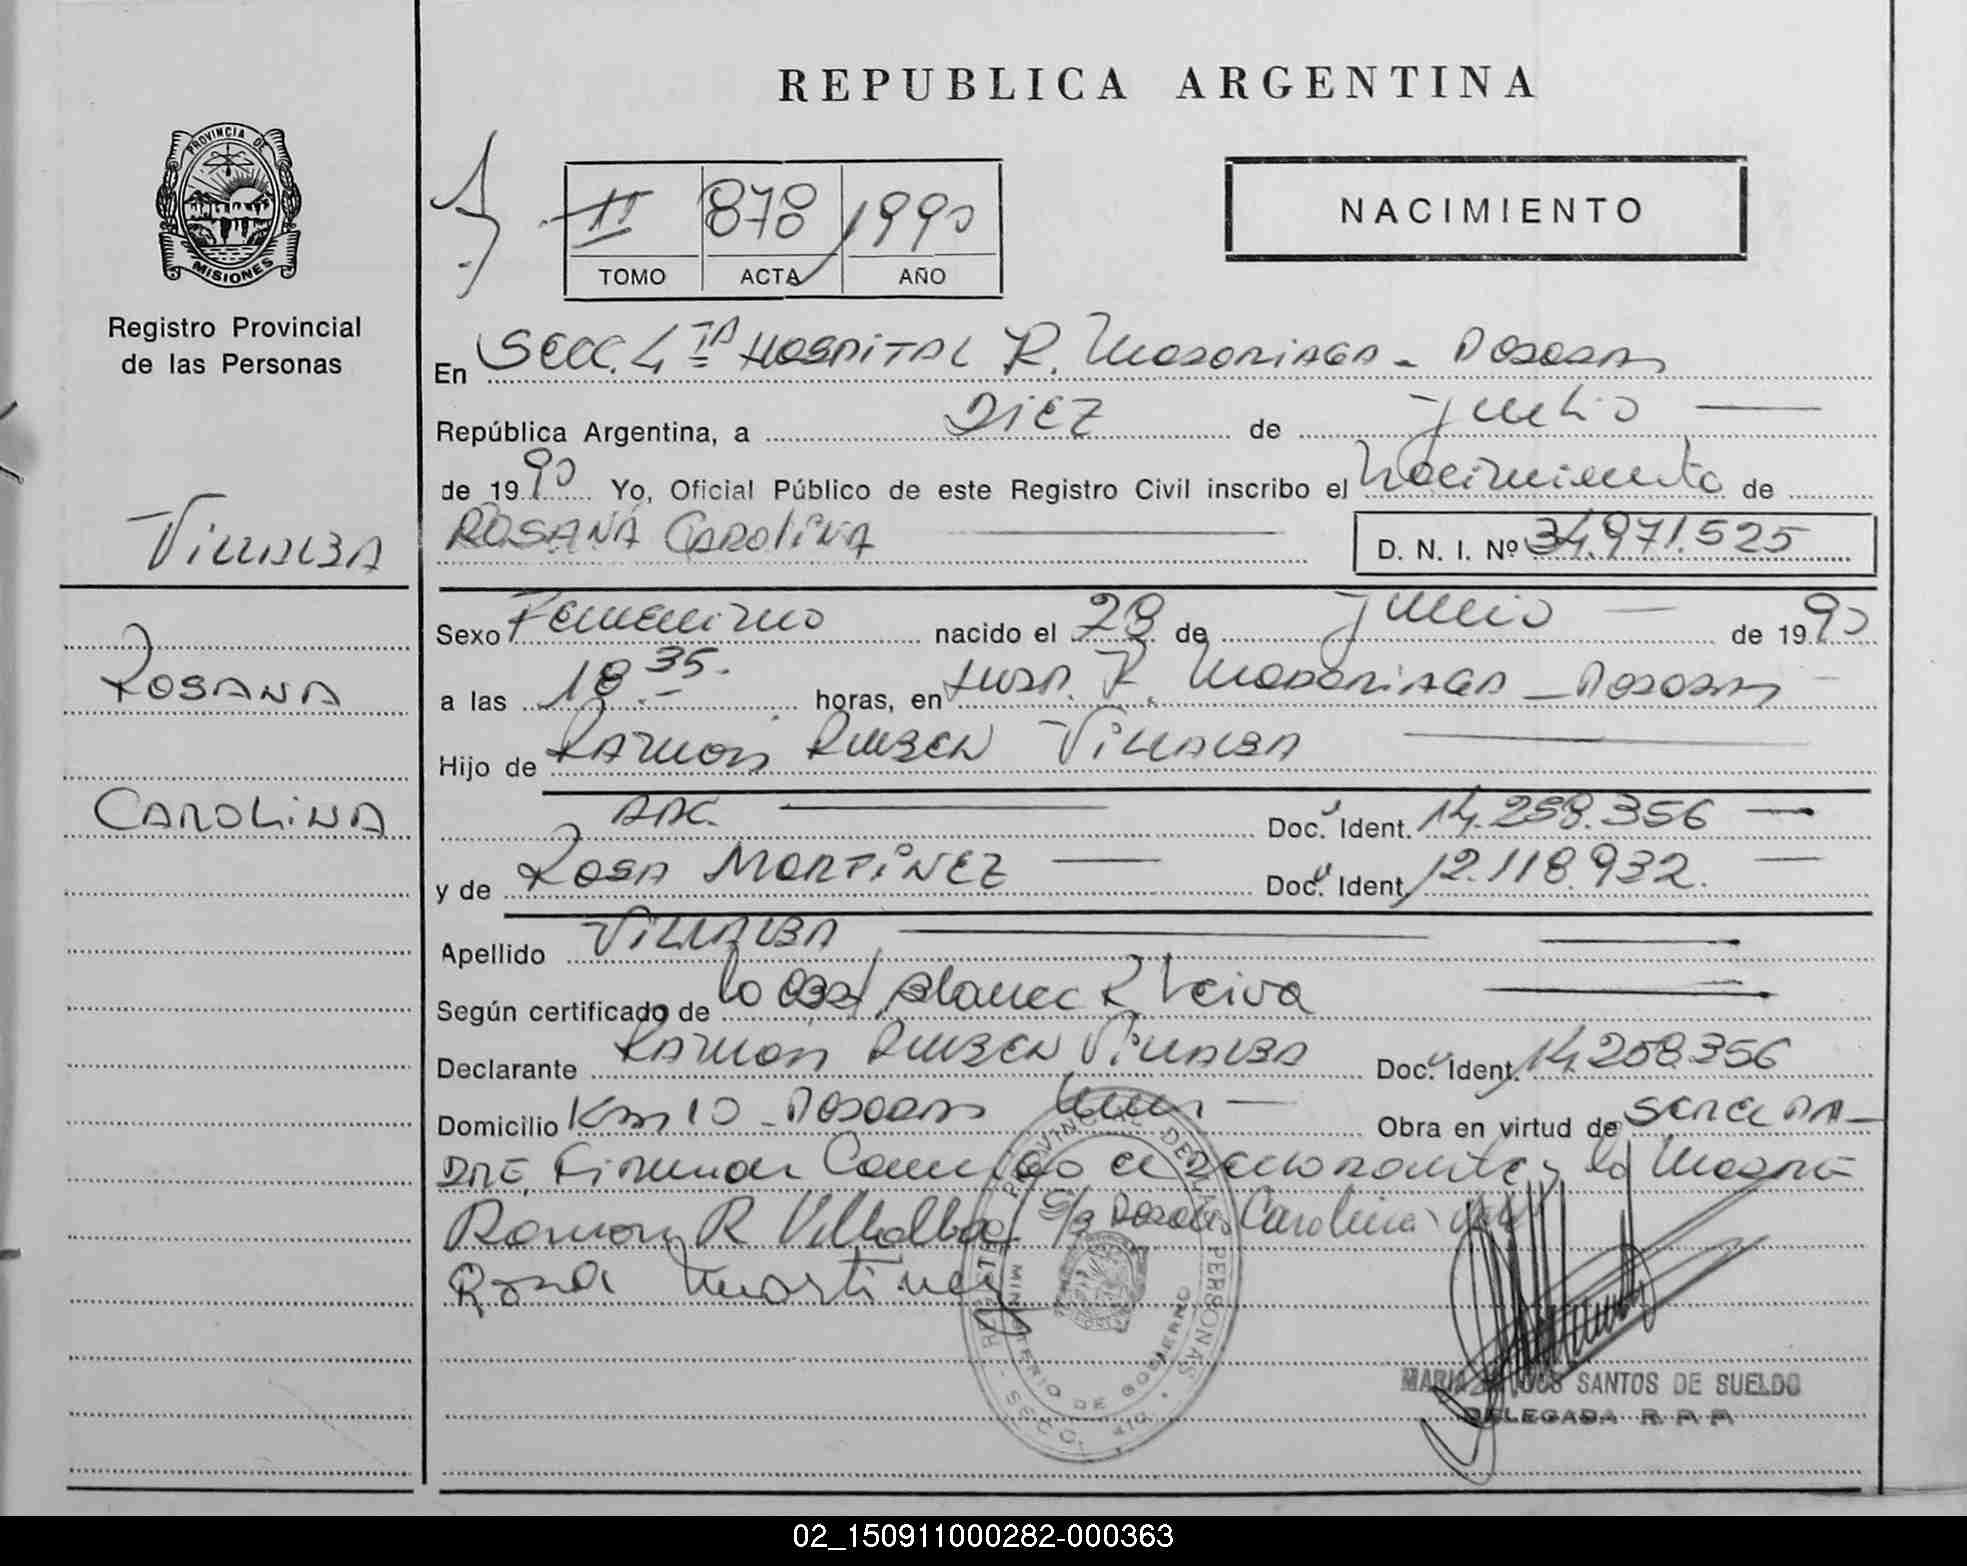 REPUBLICA ARGENTINA
PROVINCIA DE
MISIONES
Registro Provincial
de las Personas
II 878 1990
TOMO ACTA AÑO
NACIMIENTO
En Secc. 4TA Hospital R. Madariaga - Posadas
República Argentina, a Diez de Julio
de 1990 Yo, Oficial Público de este Registro Civil inscribo el Nacimiento de
Villalba
ROSANA CAROLINA D. N. I. Nº 34.971.525
Sexo Femenino nacido el 28 de Junio de 1990
Rosana
a las 18 35. horas, en Hosp. R. Madariaga - Posadas
Hijo de Ramon Ruben Villalba
Carolina
Doc. Ident. 14.258.356
y de Rosa Martinez Doc. Ident. 12.118.932.
Apellido Villalba
Según certificado de la Obst. Blanca R Leiva
Declarante Ramon Ruben Villalba Doc. Ident. 14.258.356
Domicilio Km 10 - Posadas Obra en virtud de ser el PA-
DRE, Firman Conmigo el denunciante y la Madre
Ramon R Villalba S/R Rosana Carolina vale
Rosa Martinez
REGISTRO PROVINCIAL DE LAS PERSONAS
MINISTERIO DE GOBIERNO
SECC. 4ta.
MARIA SANTOS DE SUELDO
DELEGADA R. P. P.
02_150911000282-000363